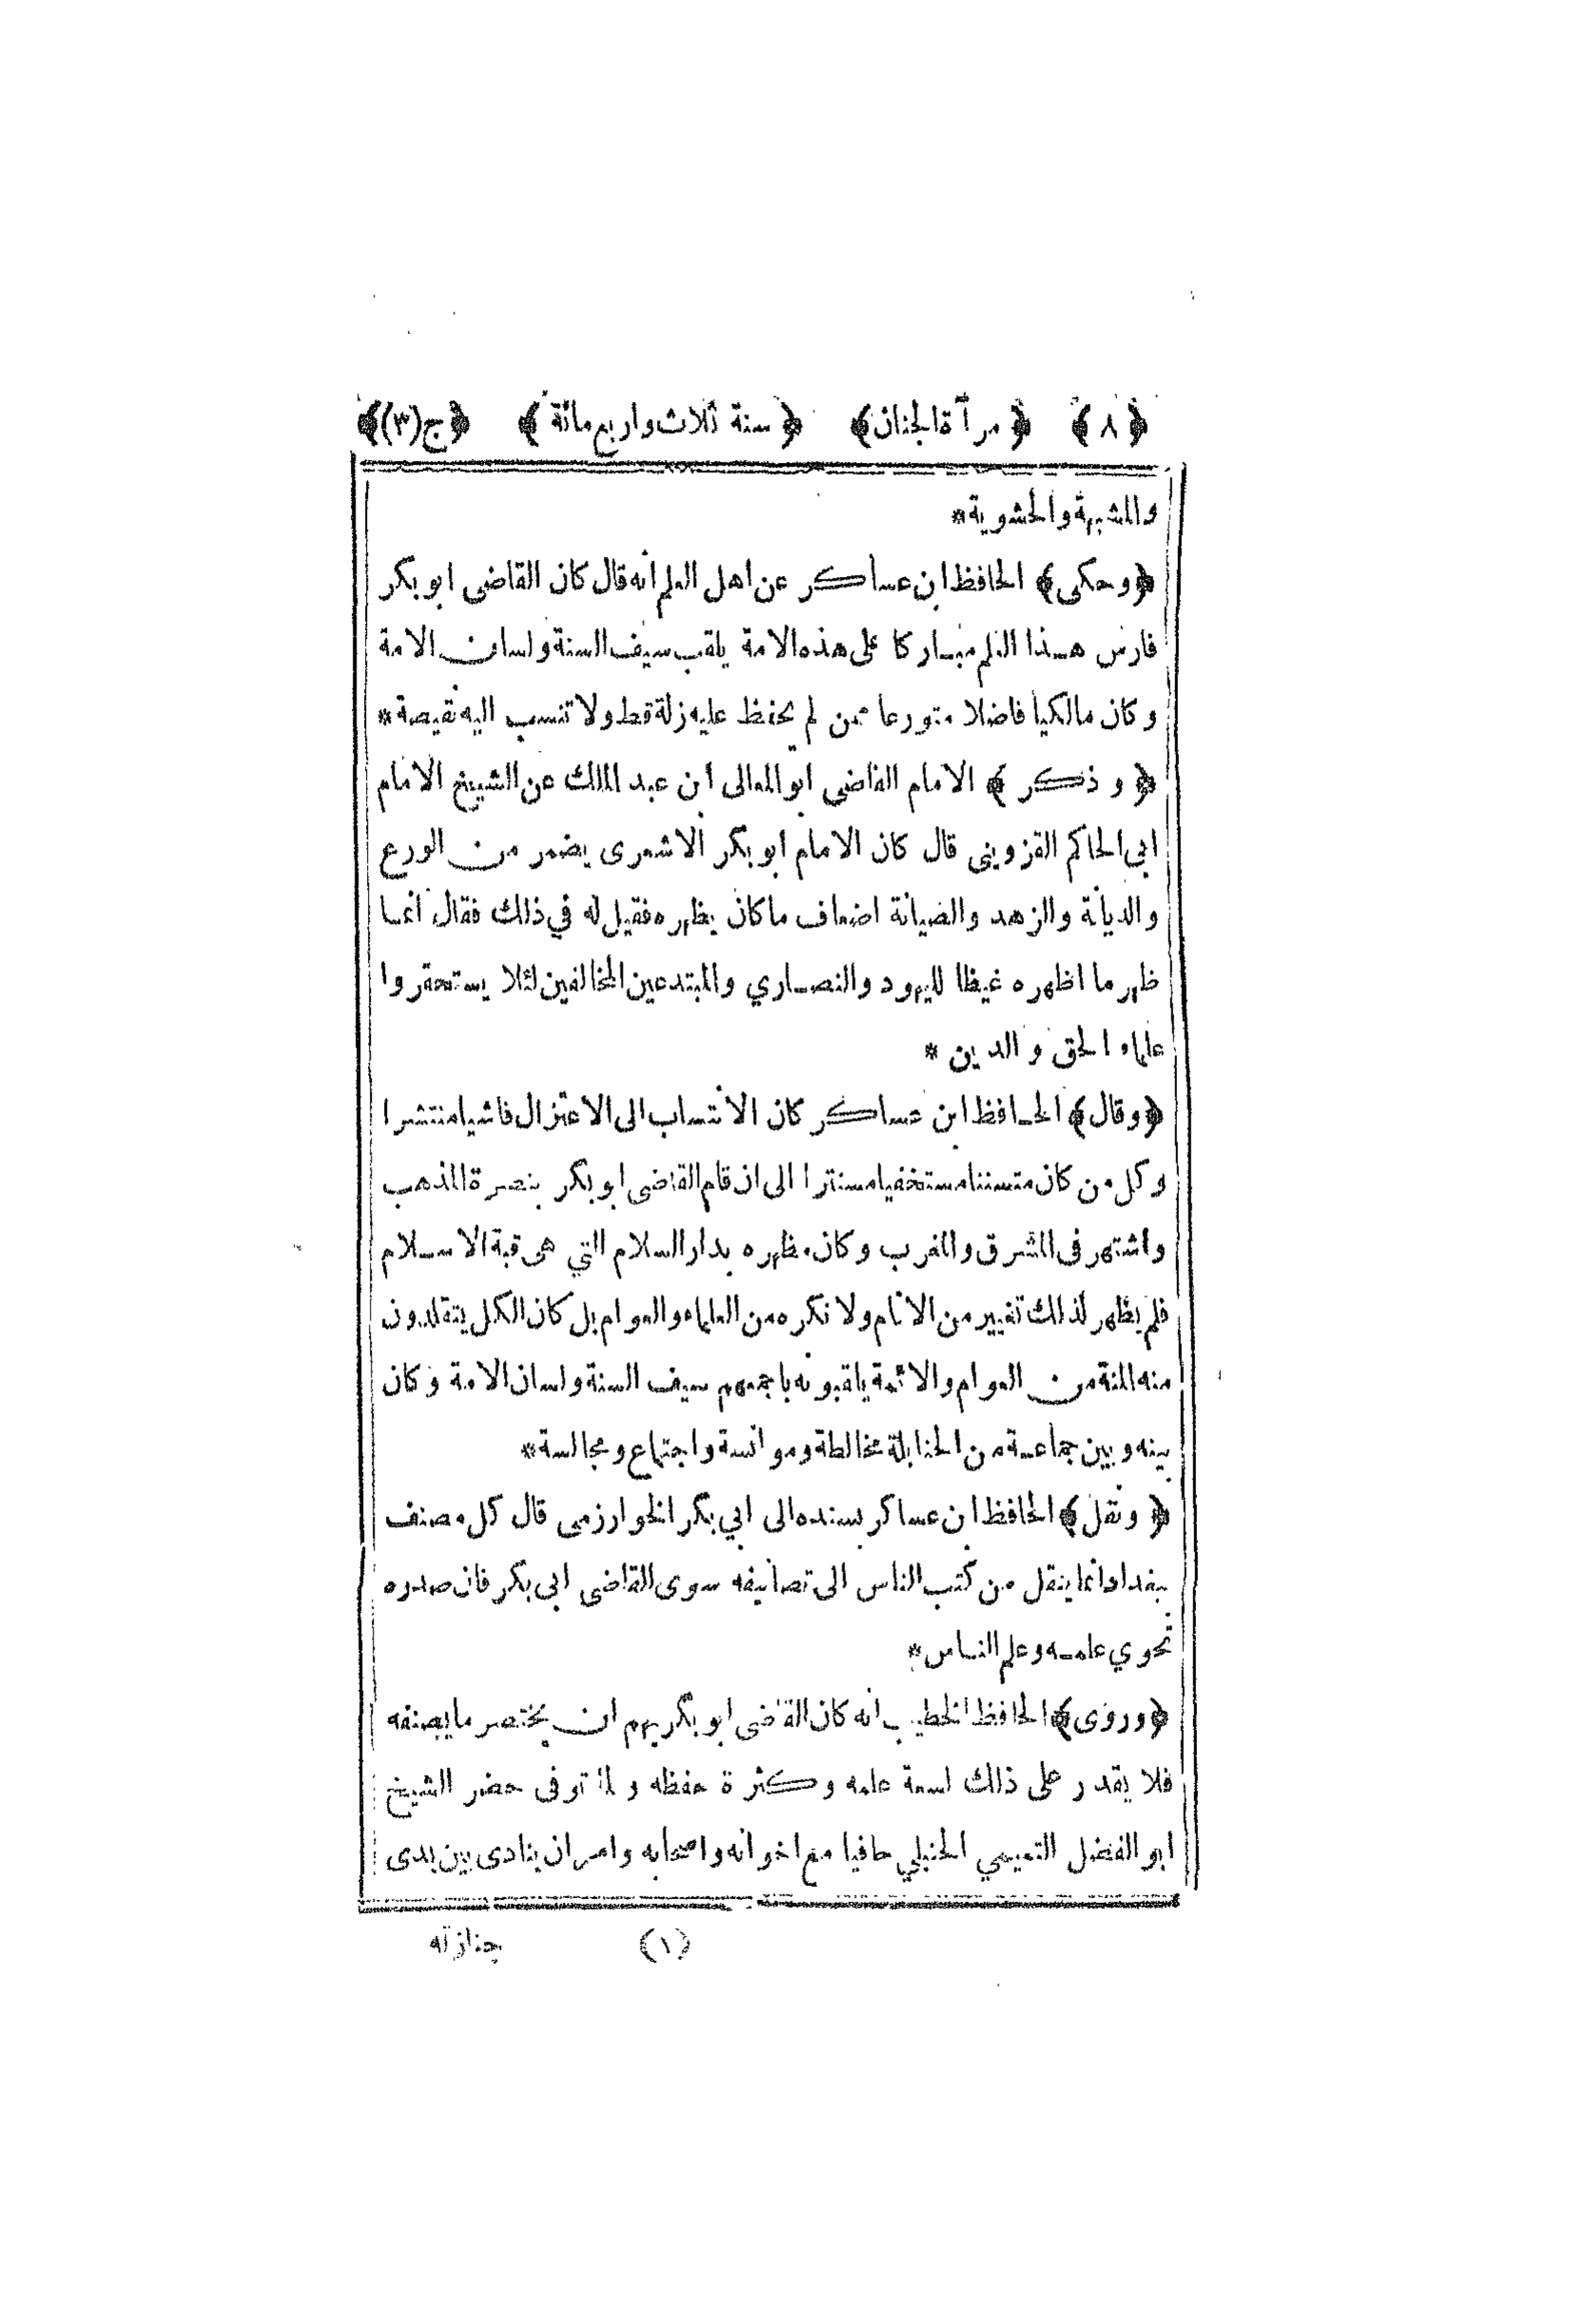 ﴿ ٨ ﴾ ﴿ مرآة الجنان ﴾ ﴿ سنة ثلاث واربع مائة ﴾ ﴿ ج (٣) ﴾
والمشبهة والحشوية *
﴿ وحكى ﴾ الحافظ ابن عساكر عن اهل العلم انه قال كان القاضى ابو بكر
فارس هذا العلم مباركا على هذه الامة يلقب سيف السنة ولسان الامة
وكان مالكيا فاضلا متورعا ممن لم يحفظ عليه زلة قط ولا تنسب اليه نقيصة *
﴿ و ذكر ﴾ الامام القاضى ابو المعالى ابن عبد الملك عن الشيخ الامام
ابي الحاكم القزوينى قال كان الامام ابو بكر الاشعرى يضمر من الورع
والديانة والزهد والصيانة اضعاف ما كان يظهره فقيل له في ذلك فقال انما
ظهر ما اظهره غيظا لليهود والنصاري والمبتدعين المخالفين لئلا يستحقروا
علماء الحق والدين *
﴿ وقال ﴾ الحافظ ابن عساكر كان الانتساب الى الاعتزال فاشيا منتشرا
وكل من كان متسننا مستخفيا مستترا الى ان قام القاضى ابو بكر بنصرة المذهب
واشتهر فى المشرق والمغرب وكان مظهره بدار السلام التي هى قبة الاسلام
فلم يظهر لذلك تغيير من الانام ولا نكره من العلماء والعوام بل كان الكل يتقلدون
منه المنة من العوام والائمة يلقبونه باجمعهم سيف السنة ولسان الامة وكان
بينه وبين جماعة من الحنابلة مخالطة وموانسة واجتماع ومجالسة *
﴿ ونقل ﴾ الحافظ ابن عساكر بسنده الى ابي بكر الخوارزمى قال كل مصنف
ببغداد انما ينقل من كتب الناس الى تصانيفه سوى القاضى ابى بكر فان صدره
تحوي علمه وعلم الناس *
﴿ وروى ﴾ الحافظ الخطيب انه كان القاضى ابو بكر يهم ان يختصر ما يصنفه
فلا يقدر على ذلك لسعة علمه وكثرة حفظه ولما توفى حضر الشيخ
ابو الفضل التميمي الحنبلي حافيا مع اخوانه واصحابه وامر ان ينادى بين يدى
(١) جنازته